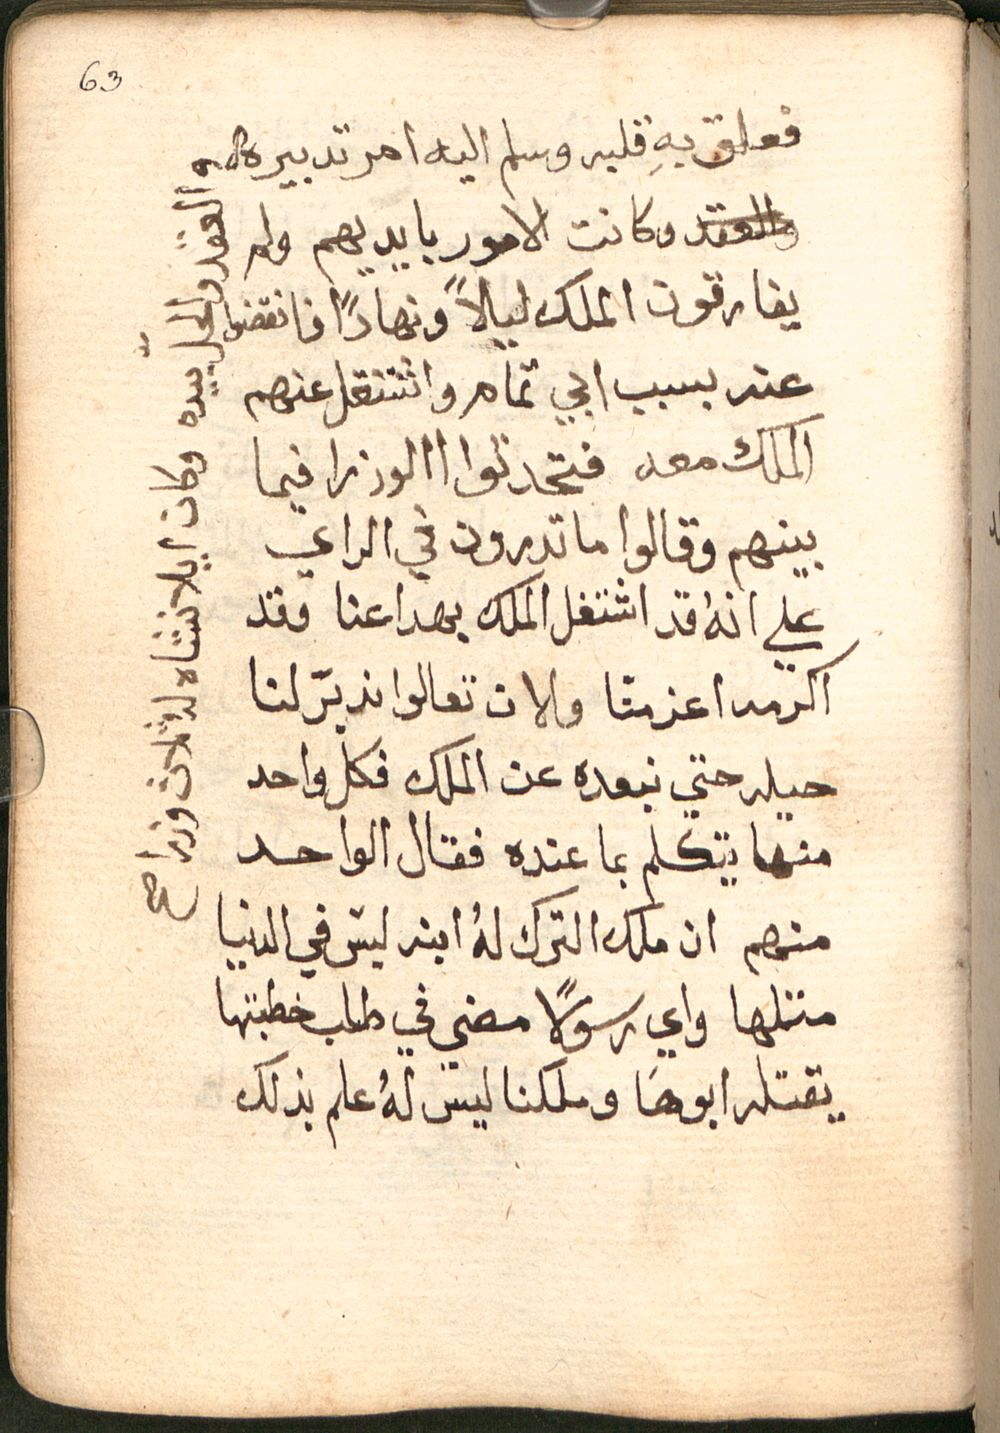 63
فعلق بهِ قلبه وسلم اليه امر تدبيره
والعقد وكانت الامور بايديهم ولم
يفارقون الملك ليلاً ونهاراً فانقضوا
عنه بسبب ابي تمام واشتغل عنهم
الملك معه فتحدثوا االوزرا فيما
بينهم وقالوا ما تدرون في الراي
علي انهُ قد اشتغل الملك بهدا عنا وقد
اكرمه اعز منا ولان تعالوا ندبّر لنا
حيله حتي نبعده عن الملك فكل واحد
منها يتكلم بما عنده فقال الواحد
منهم ان ملك الترك لهُ ابنه ليس في الدنيا
مثلها واي رسولاً مضي في طلب خطبتها
يقتله ابوها وملكنا ليس لهُ علم بذلك
والعقد والحلّ بيده وكان ايلانشاه لهُ ثلاث وزرا صح